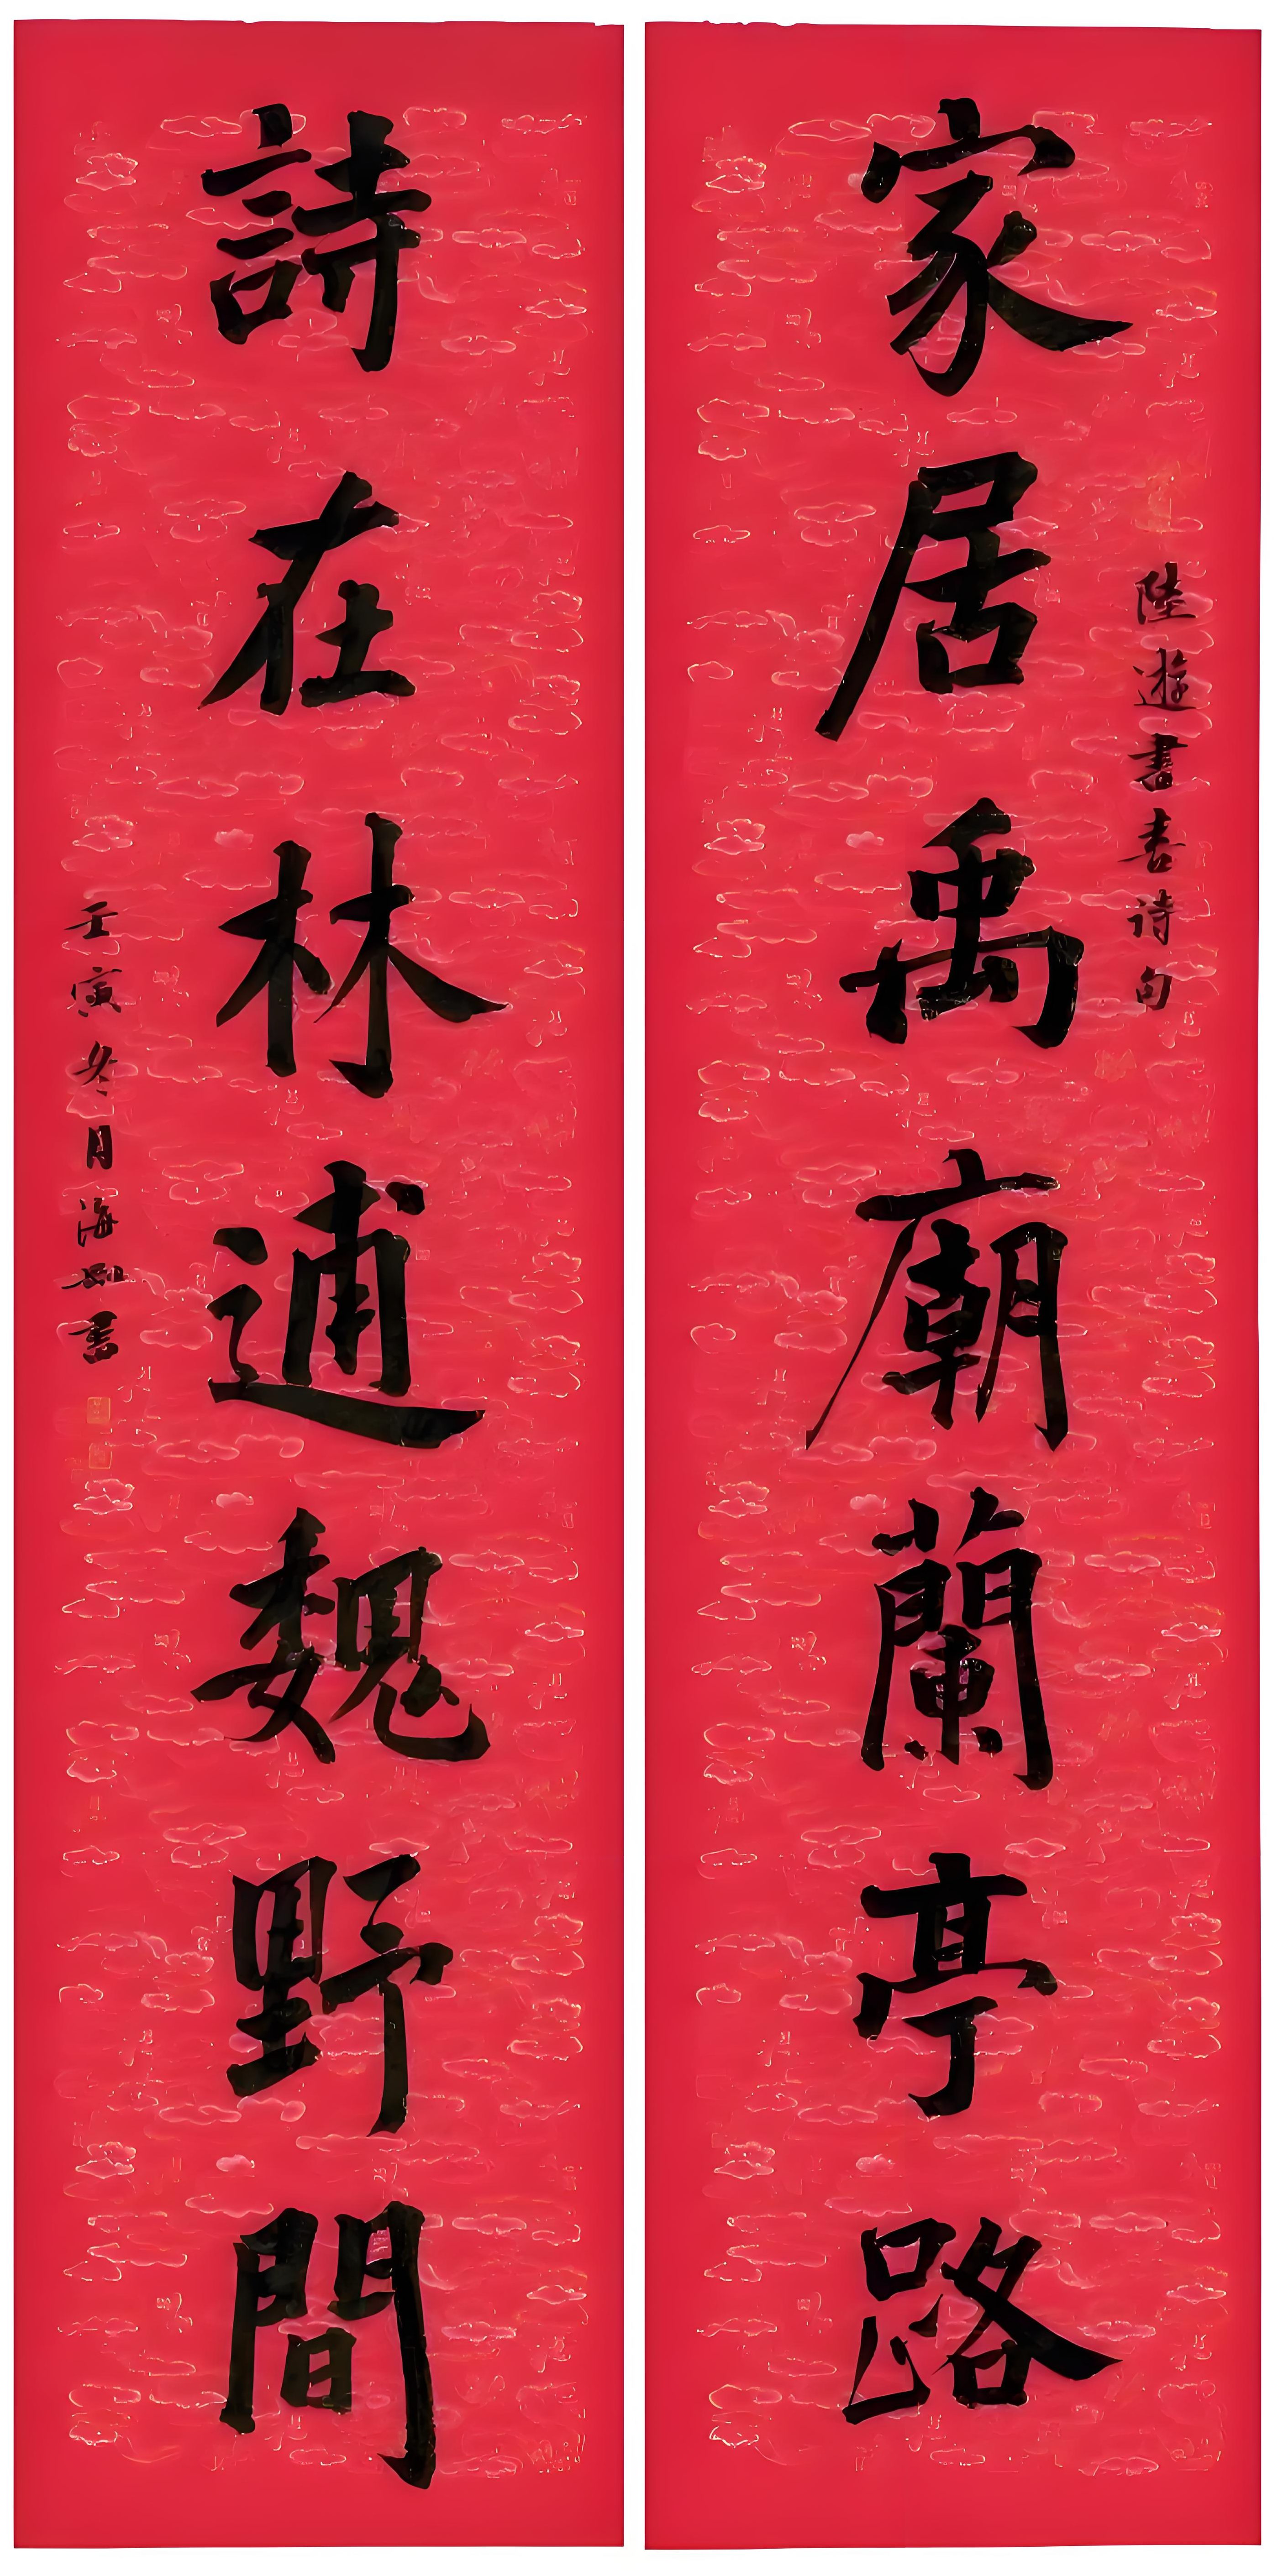 陸遊書喜詩句
家居禹廟蘭亭路
詩在林逋魏野間
壬寅冬月海書